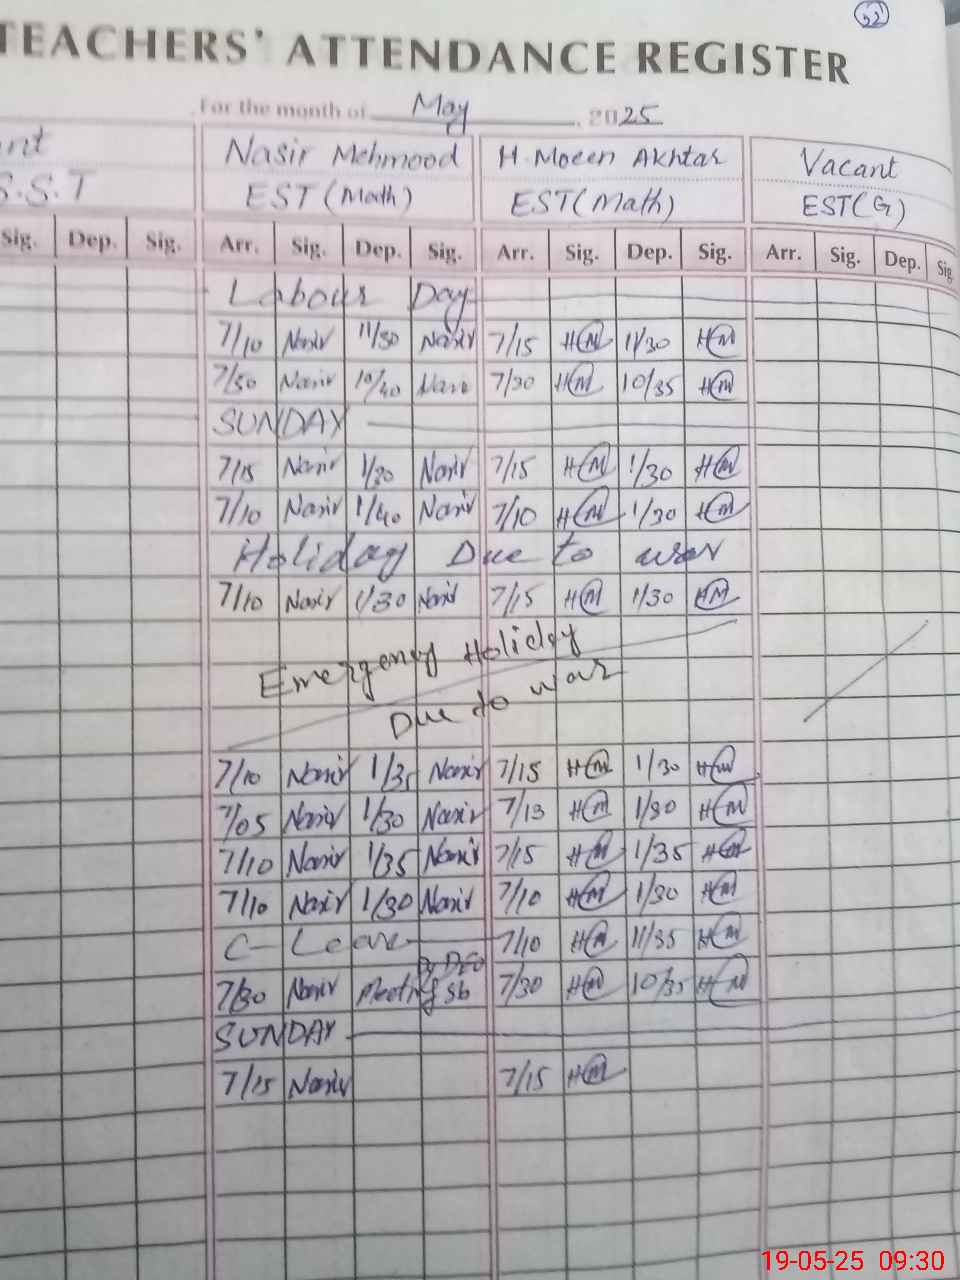 32
TEACHERS' ATTENDANCE REGISTER
For the month of May, 2025
Nasir Mehmood H. Moeen Akhtar Vacant
S.S.T EST (Math) EST (Math) EST (G)
Sig. Dep. Sig. Arr. Sig. Dep. Sig. Arr. Sig. Dep. Sig. Arr. Sig. Dep. Sig
Labour Day
7/10 Nasir 11/30 Nasir 7/15 HM 11/30 HM
7/30 Nasir 10/40 Nasir 7/30 HM 10/35 HM
SUNDAY
7/15 Nasir 1/30 Nasir 7/15 HM 1/30 HM
7/10 Nasir 1/40 Nasir 7/10 HM 1/30 HM
Holiday Due to war
7/10 Nasir 1/30 Nasir 7/15 HM 1/30 HM
Emergency Holiday
Due to war
7/10 Nasir 1/35 Nasir 7/15 HM 1/30 HM
7/05 Nasir 1/30 Nasir 7/13 HM 1/30 HM
7/10 Nasir 1/35 Nasir 7/15 HM 1/35 HM
7/10 Nasir 1/30 Nasir 7/10 HM 1/30 HM
C- Leave 7/10 HM 11/35 HM
7/30 Nasir Meeting By DEO Sb 7/30 HM 10/35 HM
SUNDAY
7/15 Nasir 7/15 HM
19-05-25 09:30